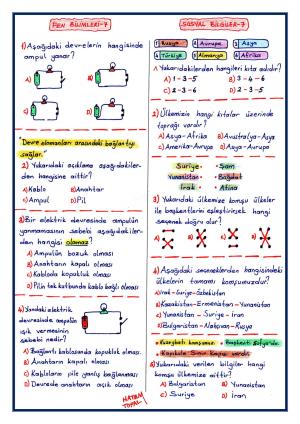 FEN BİLİMLERİ-7
1) Aşağıdaki devrelerin hangisinde
ampul yanar?
A)
B)
C)
D)
"Devre elemanları arasındaki bağlantıyı
sağlar."
2) Yukarıdaki açıklama aşağıdakiler-
den hangisine aittir?
A) Kablo
B) Anahtar
C) Ampul
D) Pil
3) Bir elektrik devresinde ampulün
yanmamasının sebebi aşağıdakiler-
den hangisi olamaz?
A) Ampulün bozuk olması
B) Anahtarın kapalı olması
C) Kabloda kopukluk olması
D) Pilin tek kutbundan kablo bağlı olması
4) Yandaki elektrik
devresinde ampulün
ışık vermesinin
sebebi nedir?
A) Bağlantı kablosunda kopukluk olması.
B) Anahtarın kapalı olması
C) Kabloların pile yanlış bağlanması
D) Devrede anahtarın açık olması
HATEM
TOPAL
SOSYAL BİLGİLER-7
1 Rusya
2 Avrupa
3 Asya
4 Türkiye
5 Almanya
6 Afrika
1) Yukarıdakilerden hangileri kıta adıdır?
A) 1-3-5
B) 3-4-6
C) 2-3-6
D) 2-3-5
2) Ülkemizin hangi kıtalar üzerinde
toprağı vardır?
A) Asya-Afrika
B) Avustralya-Asya
C) Amerika-Avrupa
D) Avrupa-Asya
Suriye
Şam
Yunanistan
Bağdat
Irak
Atina
3) Yukarıdaki ülkemize komşu ülkeler
ile başkentlerini eşleştirirsek hangi
seçenek doğru olur?
A)
B)
C)
D)
4) Aşağıdaki seçeneklerden hangisindeki
ülkelerin tamamı komşumuzdur?
A) Irak-Suriye-Özbekistan
B) Kazakistan-Ermenistan-Yunanistan
C) Yunanistan - Suriye - Iran
D) Bulgaristan-Nahçıvan-Rusya
Kuzeybatı komşumuz.
Başkenti Sofya'dır.
Kapıkule Sınır Kapısı vardır.
5) Yukarıdaki verilen bilgiler hangi
komşu ülkemize aittir?
A) Bulgaristan
B) Yunanistan
C) Suriye
D) İran